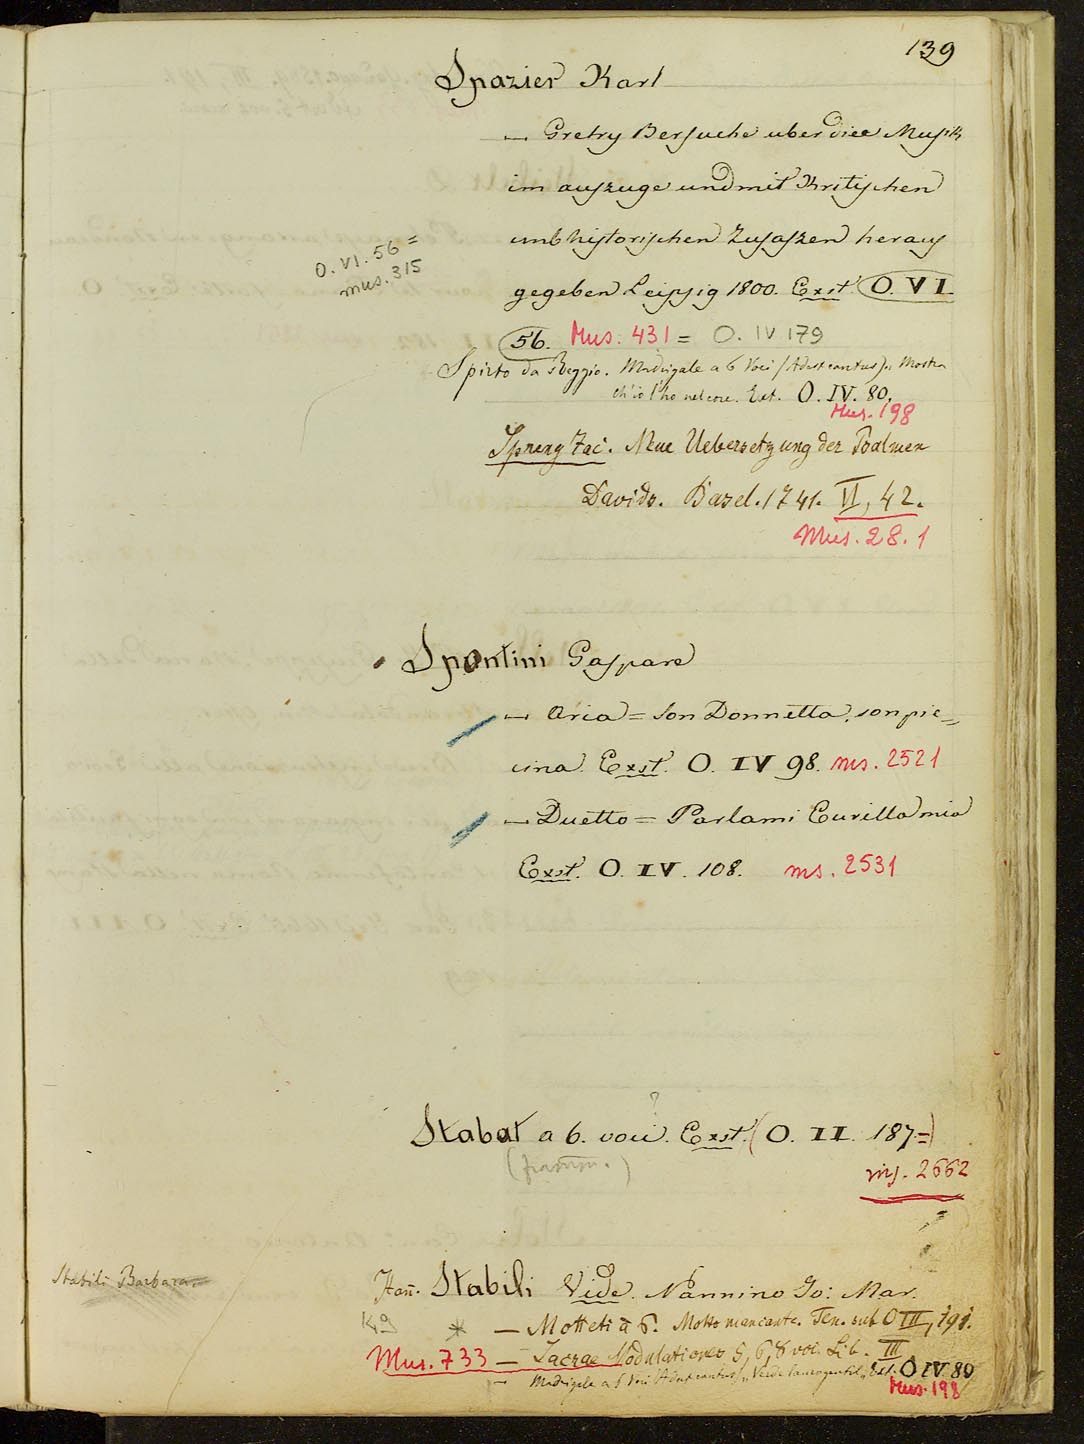 139
Spazier Karl
— Gretry Bersuche uber diee Musik
im auszuge und mit Kritischen
unb historischen Zusaszen heraus
O. VI. 56 =
mus. 315
gegeben Leipzig 1800. Exst. O. VI.
56. Mus. 431 = O. IV 179
Spirto da Reggio. Madrigale a 6 Voci (Adest cantus) „ Mostra
ch'io l'ho nel core. Ext. O. IV. 80.
Mus. 198
Spreng Jac. Neue Uebersetzung der Psalmen
Davids. Basel. 1741. II, 42.
Mus. 28.1
Spontini Gaspare
— Aria = Son Donnetta, son pic=
cina. Exst. O. IV 98. ms. 2521
— Duetto = Parlami Eurilla mia
Exst. O. IV. 108. ms. 2531
?
Stabat a 6. voci. Exst. (O. II. 187=)
(framm.)
ms. 2662
Stabili Barbara
Stabili Vide. Nannino Gio: Mar.
149 * — Motteti a 6. Motto mancante. Ten. sub O III, 191.
Mus. 733 — Sacrae Modulationes 5, 6, 8 voc. Lib. III
— Madrigale a 6 Voci (Adest cantus) „ Ext. O IV 80
Mus. 198